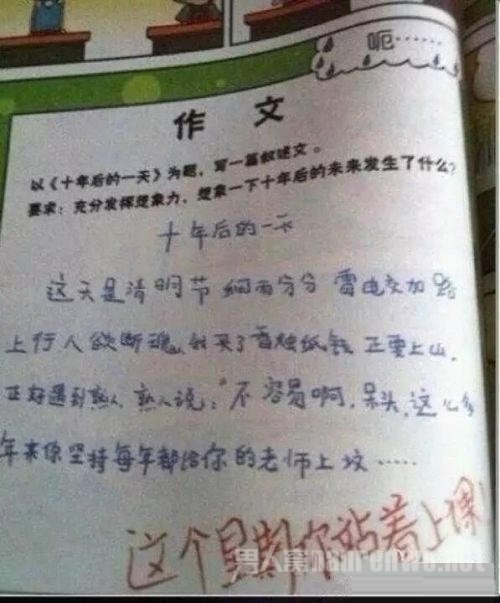 呃……
作 文
以《十年后的一天》为题,写一篇叙述文。
要求:充分发挥想象力,想象一下十年后的未来发生了什么?
十年后的一天
这天是清明节 细雨分分 雷电交加 路
上行人欲断魂,我买了香烛纸钱 正要上山,
正好遇到熟人,熟人说:"不容易啊,呆头,这么多
年来你坚持每年都给你的老师上坟……
这个星期你站着上课!
男人窝nanrenwo.net